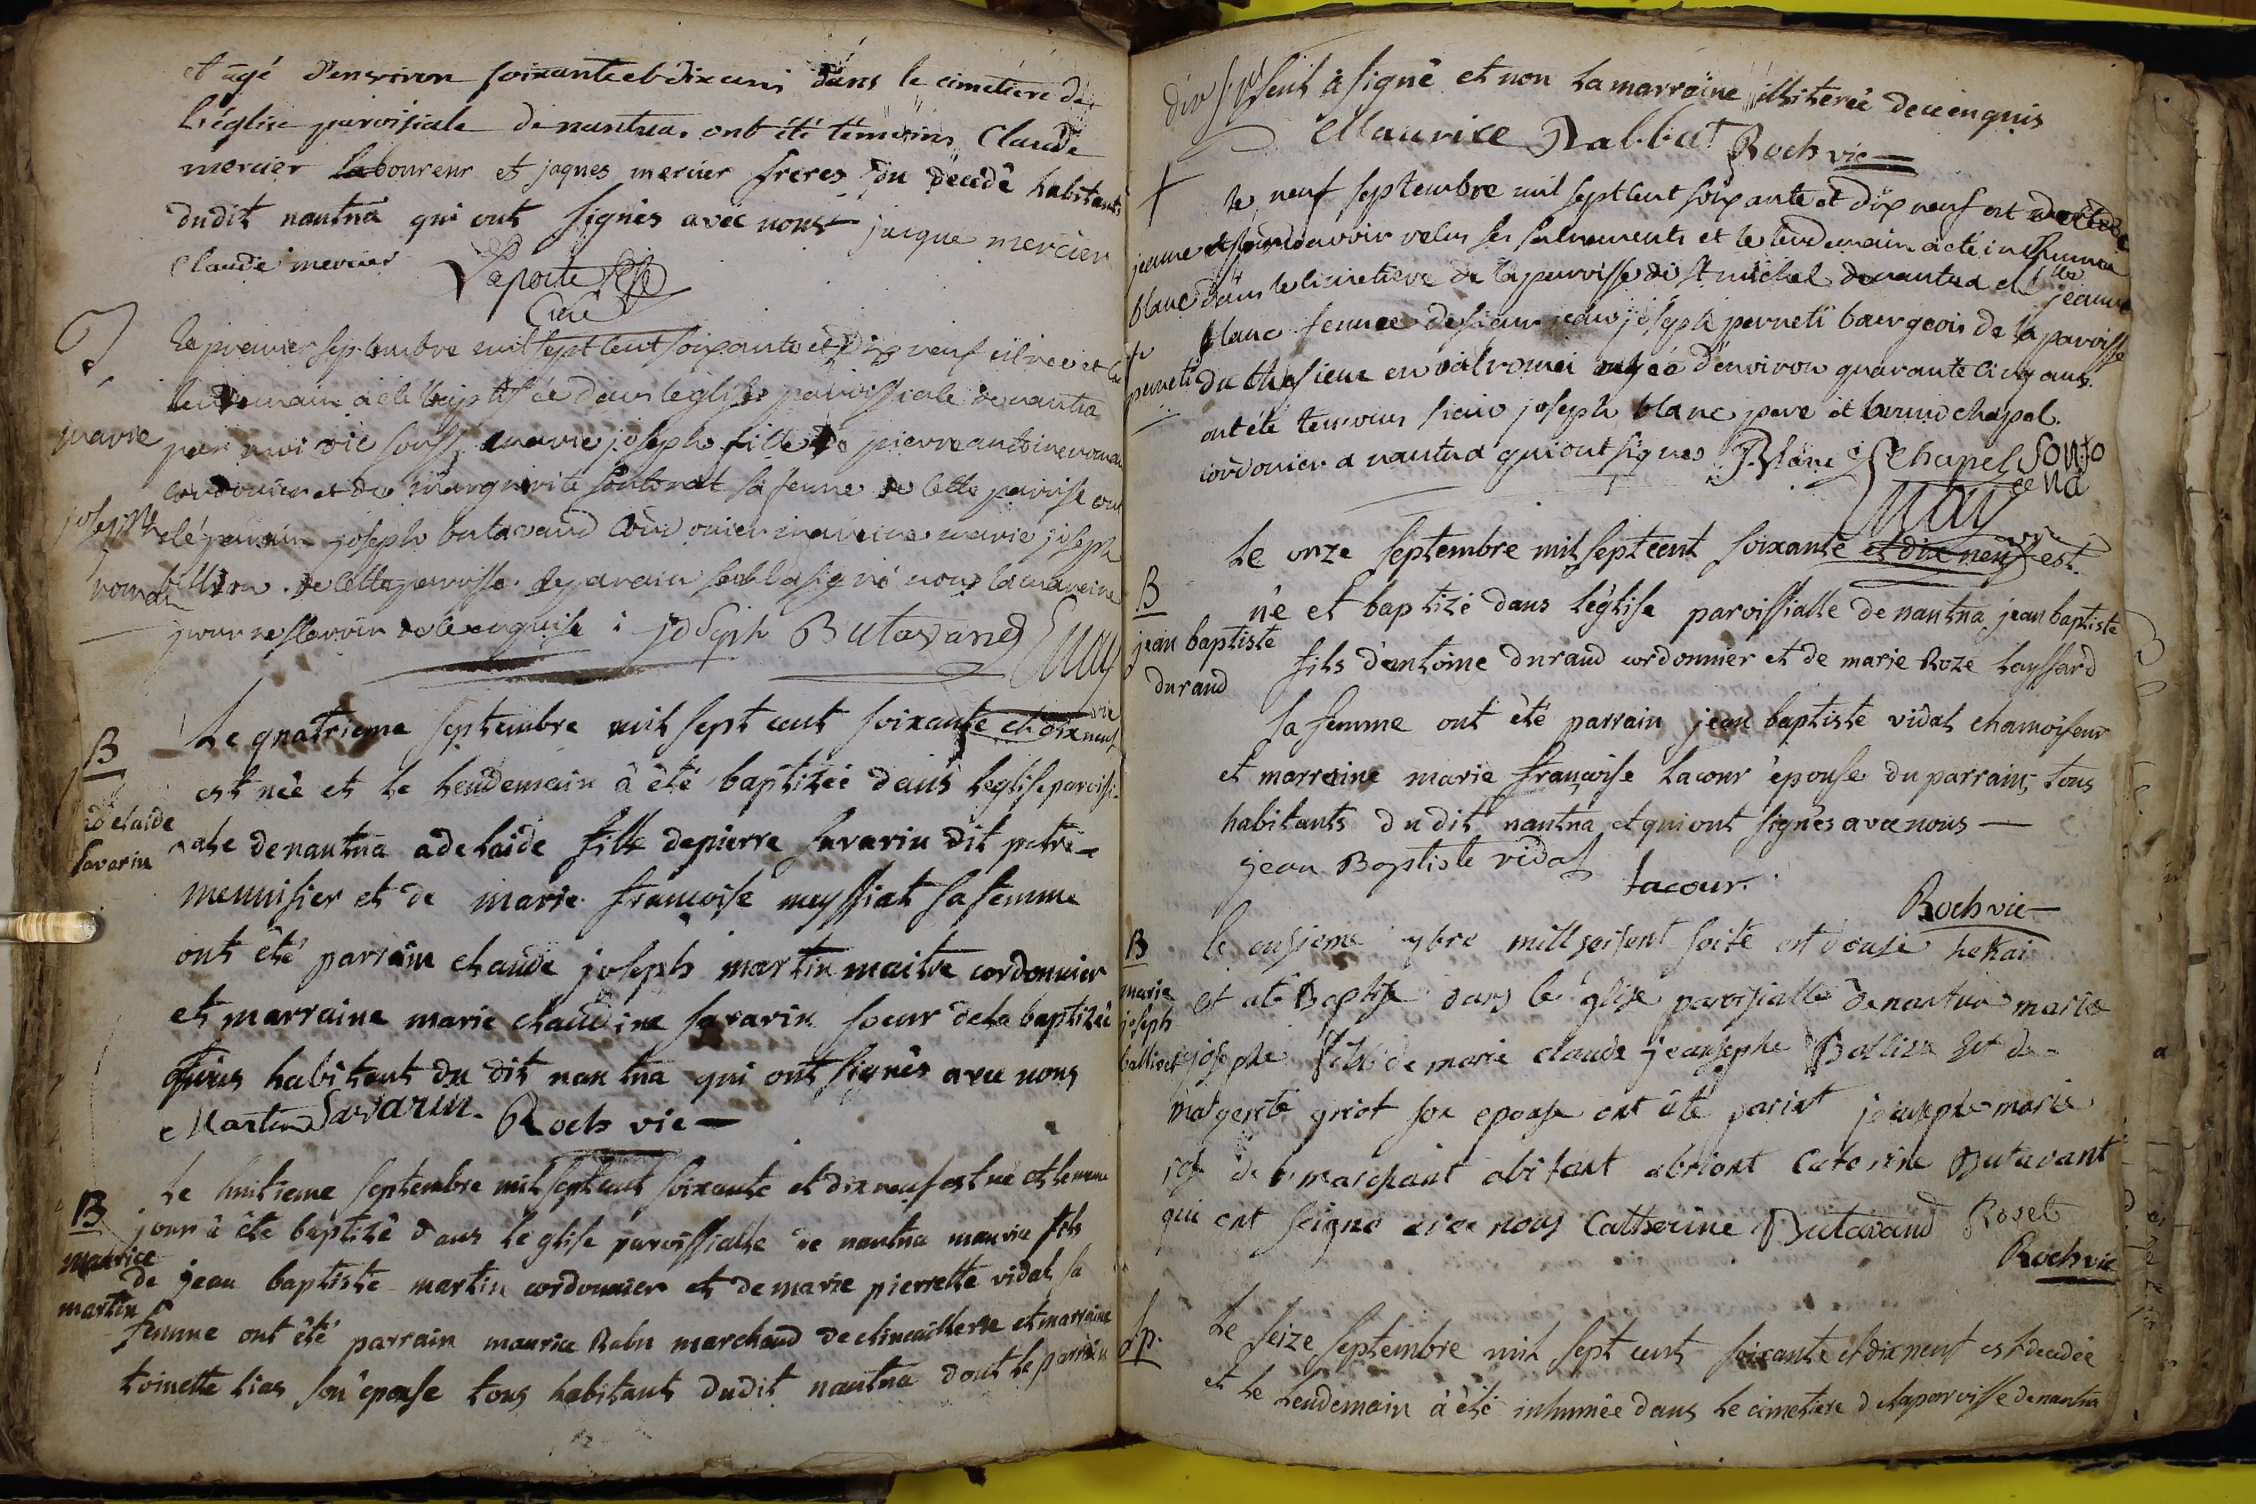 et agé d'environ soixante et dix ans dans le cimetiere de
l'église paroisiale de nantua. ont été témoins Claude
mercier laboureur et jaques mercier freres du decedé habitants
dudit nantua qui ont signés avec nous jacque mercier
Claude mercier Laporte
Curé
le premier septembre mil sept cent soixante et dix neuf est née et le
lendemain a été baptisée dans leglise paroissiale de nantua
par moi vic souss. marie josephe fille de pierre antoine roman
cordonier et de marguerite sontonat sa femme de cette paroisse ont
été parain joseph butavand cordonier maraine marie joseph
de cette paroisse. le parain seul a signé non la maraine
pour ne savoir de ce enquise : joseph Butavand
marie
josephte
roman
B
adelaide
savarin
Le quatrieme septembre mil sept cent soixante et dix neuf
est née et le lendemain à èté baptizée dans l'eglise paroissi-
ale de nantua adelaide fille de pierre savarin dit petre
menuisier et de marie françoise meyssiat sa femme
ont èté parrain claude joseph martin maitre cordonnier
et marraine marie claudine savarin soeur de la baptizée
tous habitant du dit nantua qui ont signés avec nous
Martin Savarin. Roch vic
B
maurice
martin
Le huitieme septembre mil sept cent soixante et dix neuf est né et le meme
jour à èté baptizé dans l'eglise paroissialle de nantua maurice fils
de jean baptiste martin cordonnier et de marie pierrette vidal sa
femme ont èté parrain maurice Rabu marchand de clincaillerie et marraine
toinette lias son epouse tous habitants dudit nantua dont le parrain
seul à signé et non la marraine illiterée de ce enquis
Maurice Rabbat Roch vic
le neuf septembre mil sept cent soixante et dix neuf est decedée
avoir reçus ses sacrements et le lendemain a été inhumée
dans le cimetiere de la paroisse de st michel de nantua jeanne
blanc femme de sieur jean joseph perneti bourgeois de la paroisse
du en valromei agée d'environ quarante cinq ans.
ont été temoins sieur joseph blanc pere et chapel
cordonier a nantua qui ont signés J Blanc Chapel
jeanne
blanc
fe
perneti
B
jean baptiste
durand
Le onze septembre mil sept cent soixante et dix neuf est
né et baptizé dans l'église paroissialle de nantua jean baptiste
fils d'antoine durand cordonnier et de marie Roze layssard
sa femme ont èté parrain jean baptiste vidal chamoiseur
et marraine marie françoise lacour èpouse du parrain, tous
habitants dudit nantua et qui ont signés avec nous
jean Baptiste vidal lacour.
Roch vic
B
marie
joseph
balliod
le onsieme 7bre mill
et été Baptise dans le glise paroisialle de nantua marie
josephe fille de marie claude jeanjosephe Ballion et de
margerite griot son epouse ont été parint joseph marie
marchant abitant Caterine Butavant
qui ont signé avec nous Catherine Butavand Roset
Roch vic
Sp.
Le seize septembre mil sept cent soixante et dix neuf est decedée
et le lendemain à èté inhumée dans le cimetiere de la paroisse de nantua